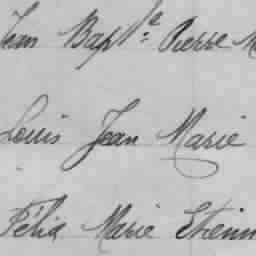 Jean Bapte Pierre M
Louis Jean Marie
Félix Marie Etienn